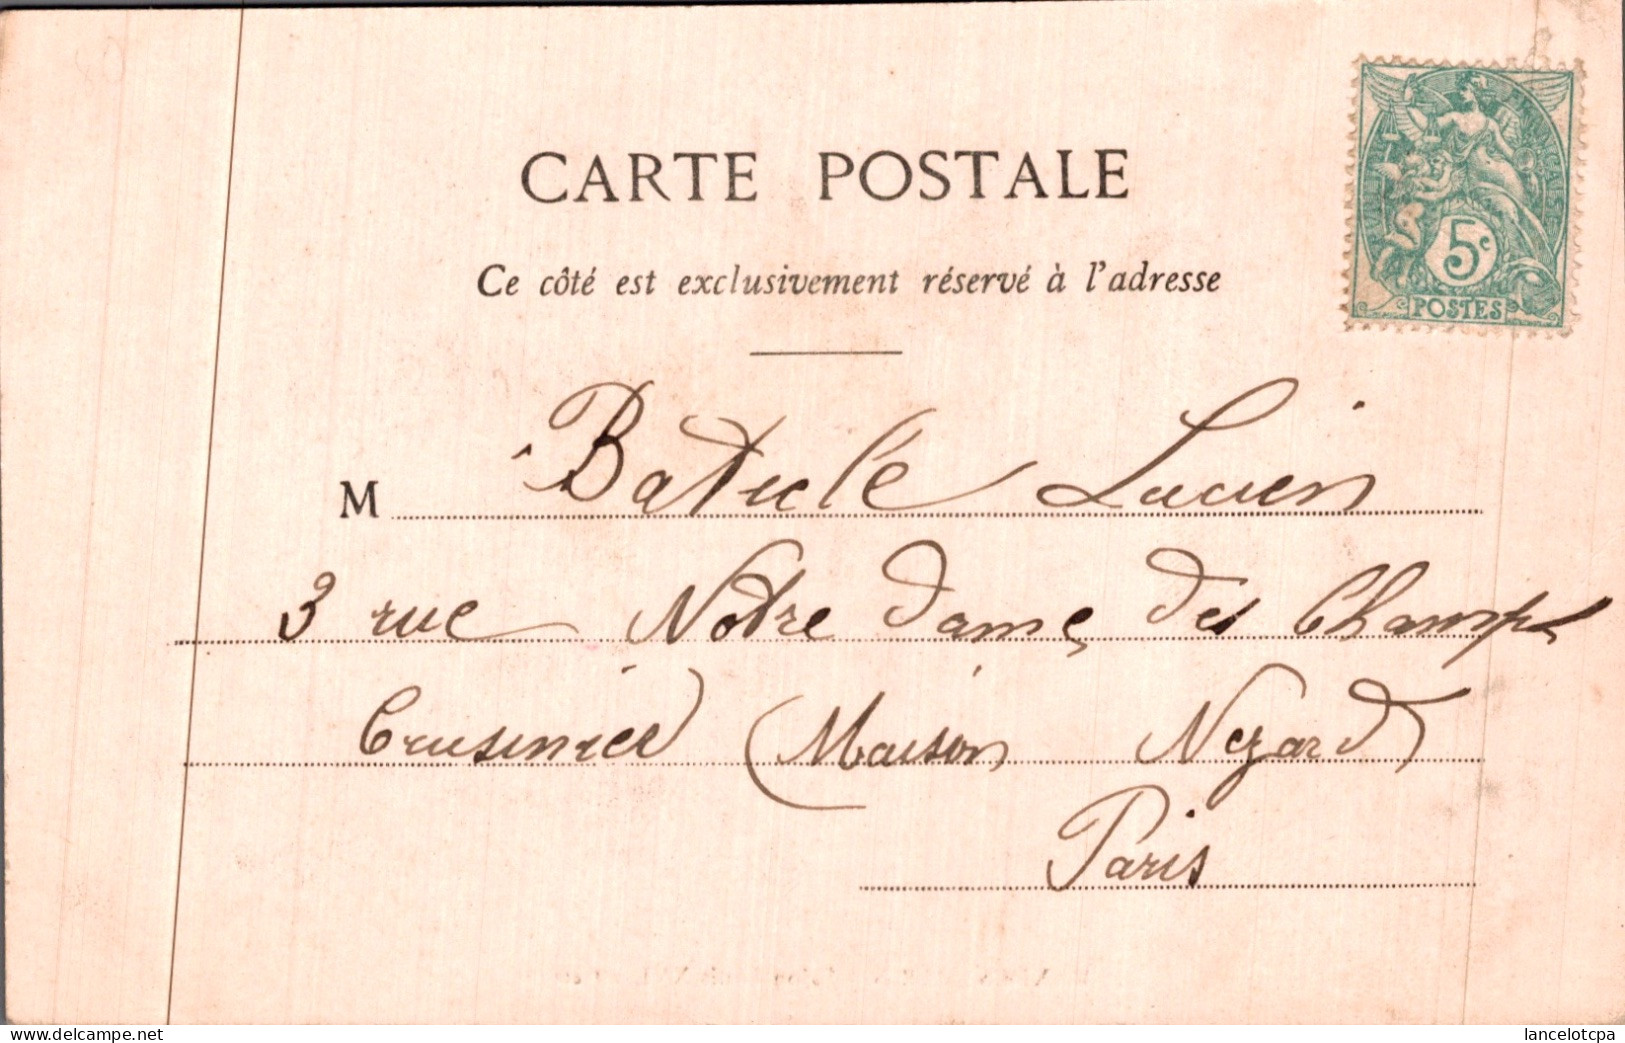 CARTE POSTALE
Ce côté est exclusivement réservé à l'adresse
5c
POSTES
M Baticle Lucien
3 rue Notre dame des Champs
Cuisinier (Maison Nezard)
Paris
www.delcampe.net
lancelotcpa